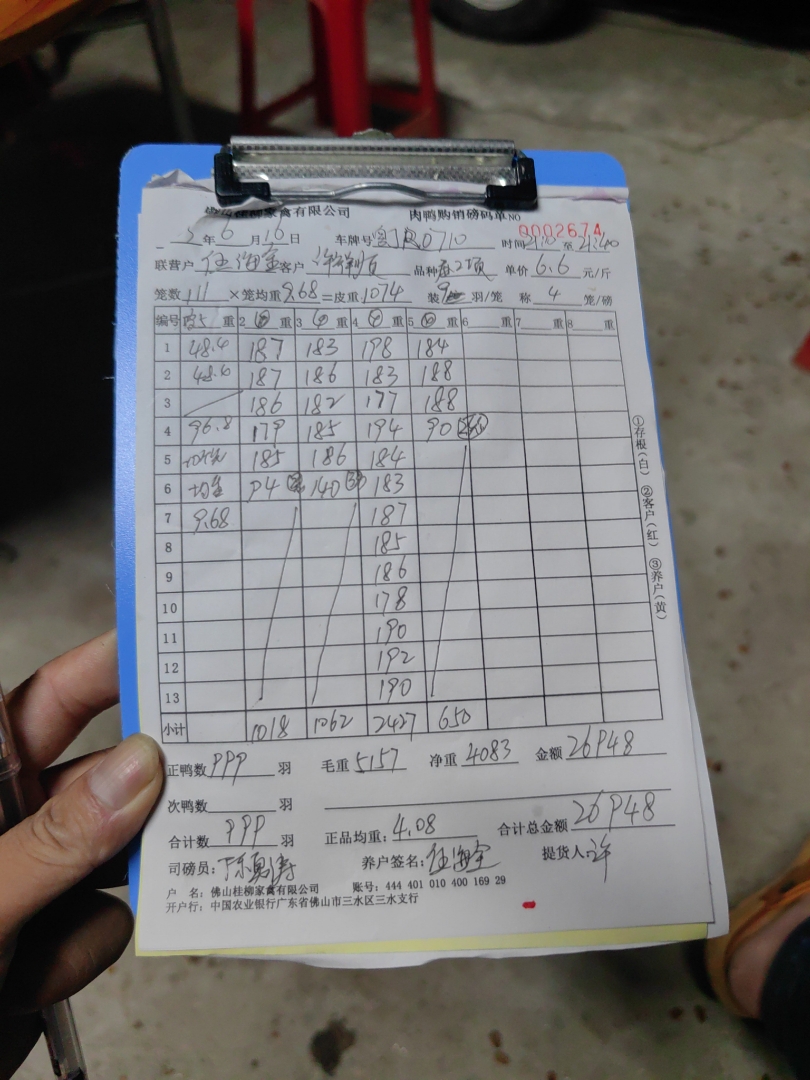 桂柳家禽有限公司 肉鸭购销磅码单NO 0002674
5年6月16日 车牌号 R0710 时间 至
联营户 伍海金 客户 品种 单价6.6元/斤
笼数111×笼均重9.68=皮重1074 装9羽/笼 称4笼/磅
编号 重 2 重 3 重 4 重 5 重 6 重 7 重 8 重
1 48.4 187 183 198 184
2 48.4 187 186 183 188
3 186 182 177 188
4 96.8 179 185 194 90
5 185 186 184
6 均重 94 140 183
7 9.68 187
8 185
9 186
10 178
11 190
12 192
13 190
小计 1018 1062 2427 650
正鸭数999羽 毛重5157 净重4083 金额26948
次鸭数 羽
合计数999羽 正品均重:4.08 合计总金额26948
司磅员:陈勇涛 养户签名:伍海金 提货人:许
户 名:佛山桂柳家禽有限公司 账号:444 401 010 400 169 29
开户行:中国农业银行广东省佛山市三水区三水支行
①存根(白) ②客户(红) ③养户(黄)